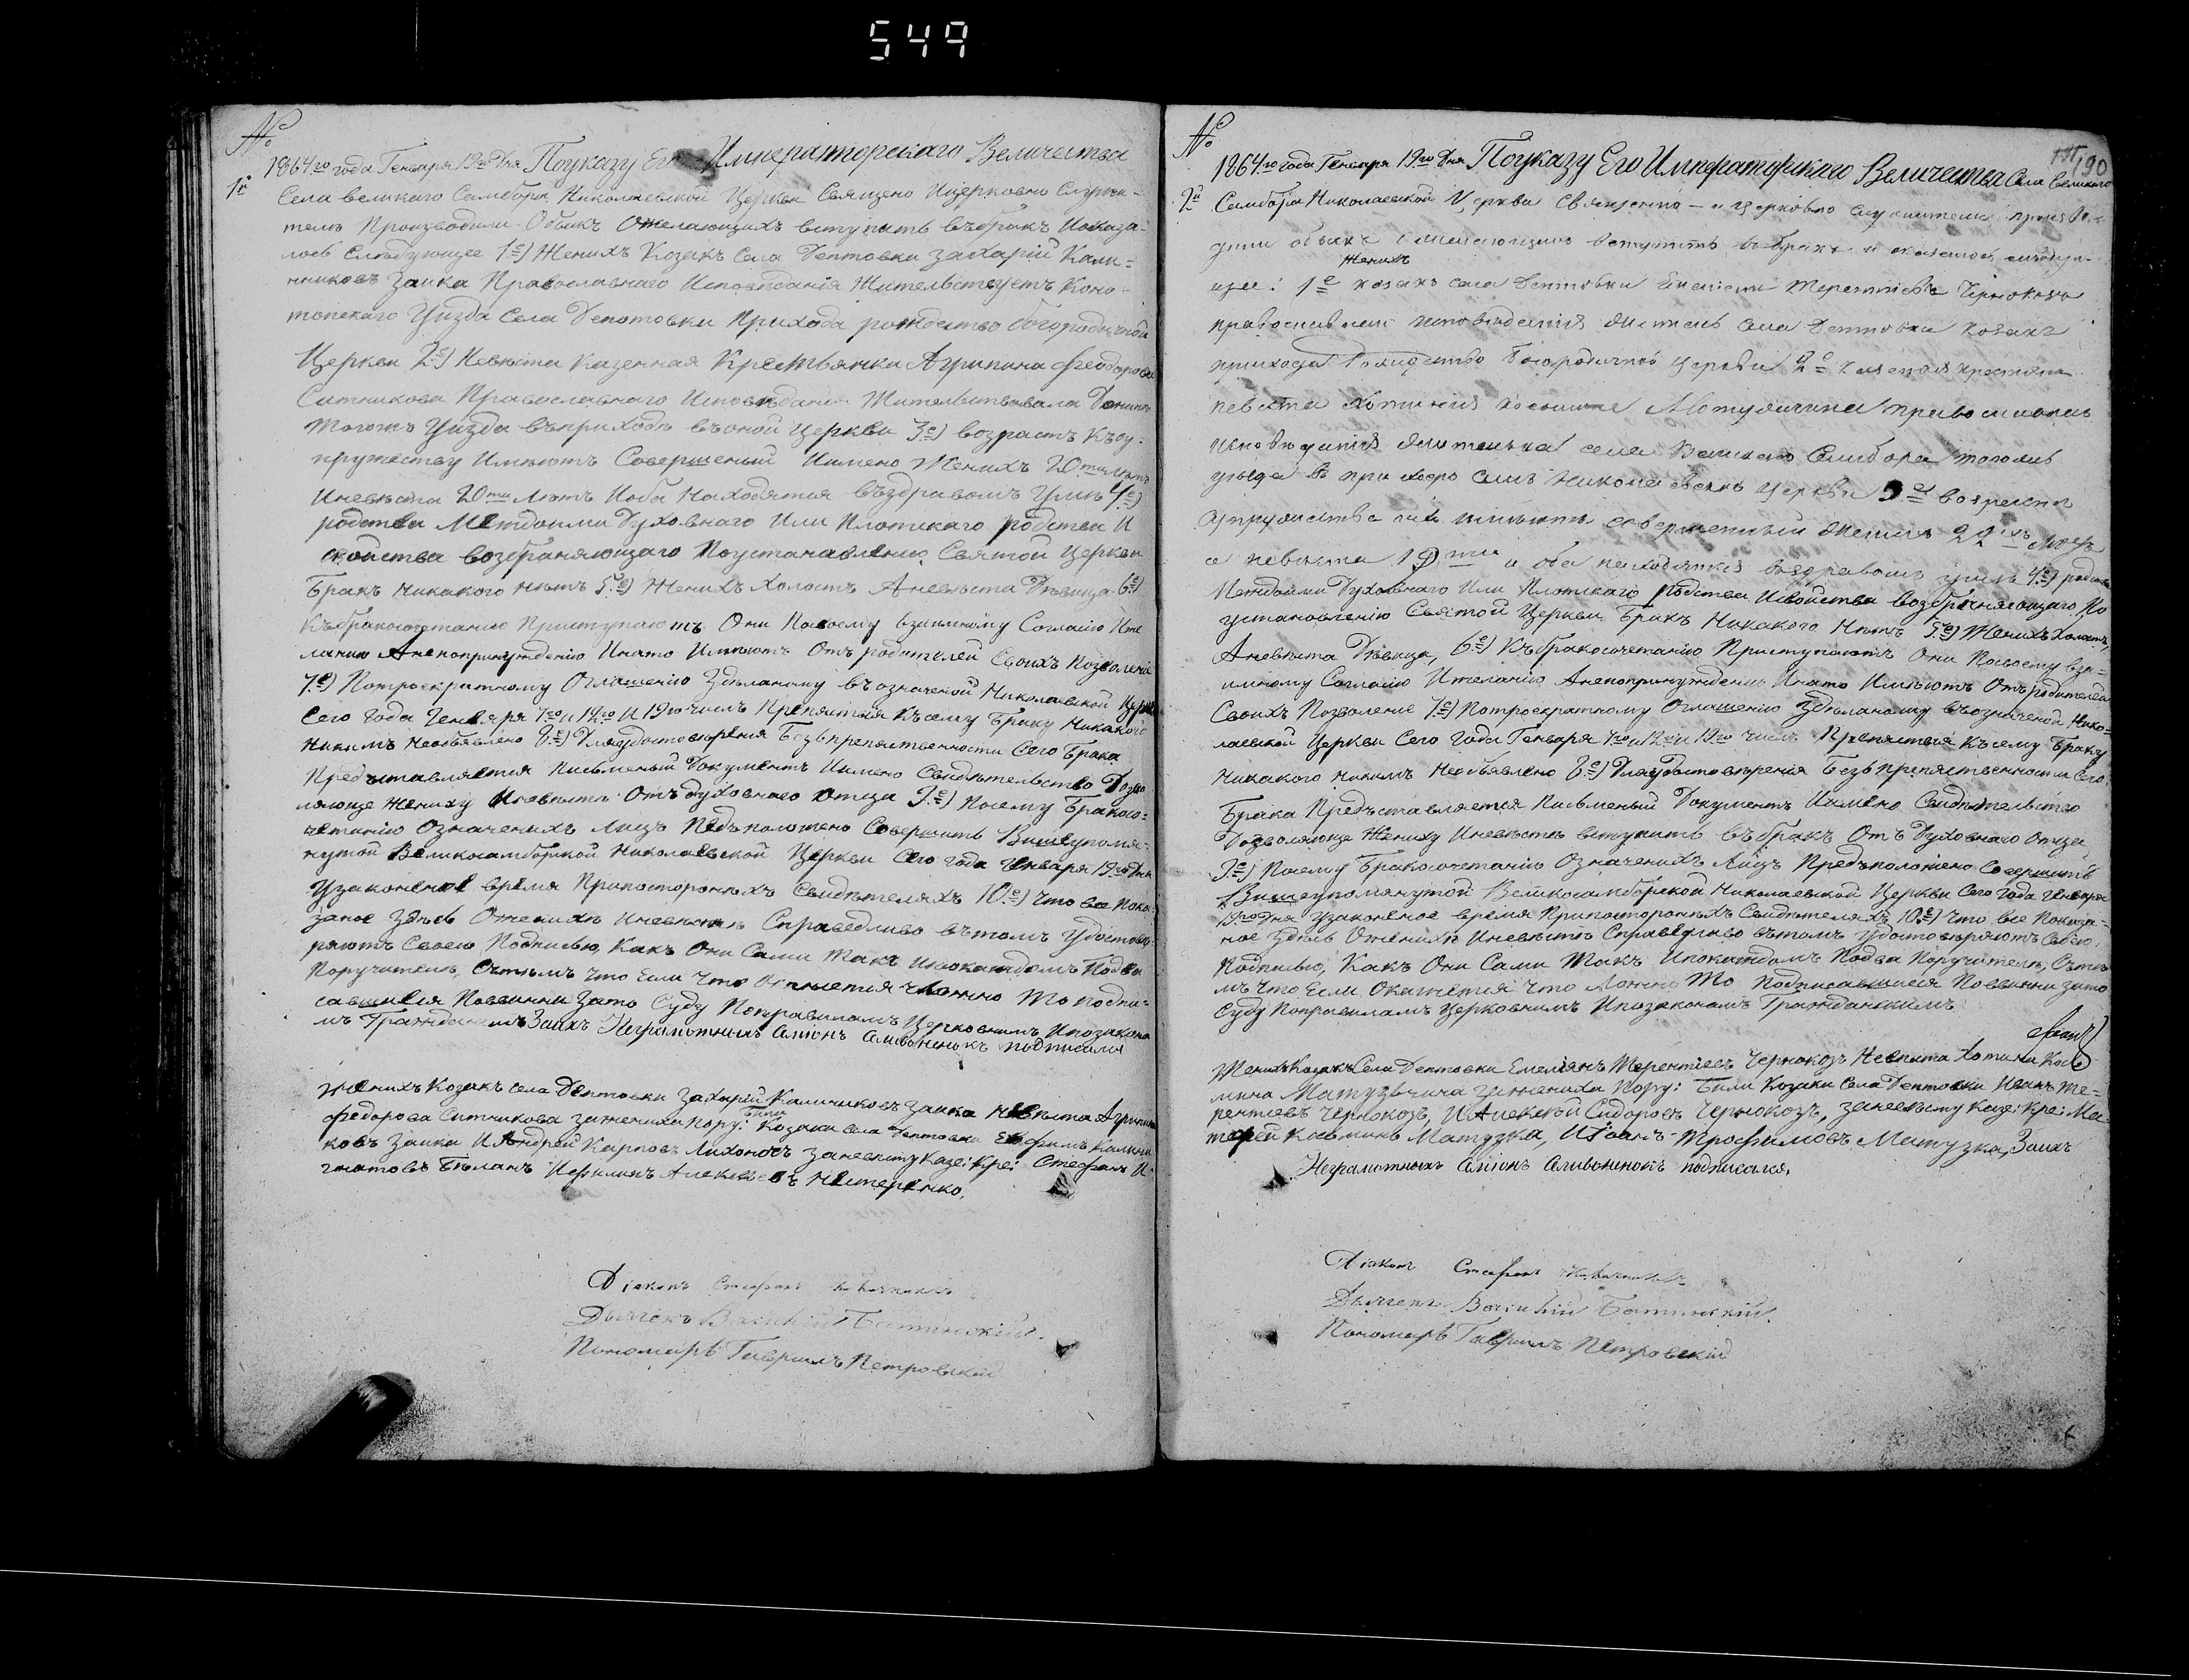 549
№
1864го года Генваря 19го Дня Поуказу Его Императорского Величества
1й Села великаго Самбора Николаевской Церкви Священо Ицерковно Служи-
тели Производили Обыкъ Ожелающихъ вступить въбракъ Иоказа-
лось Следующее 1е) Женихъ Козакъ Села Дептовки Захарій Кали-
нниковъ Заика Православнаго Исповеданія Жительствуетъ Коно-
топскаго Уизда Села Депотовки Прихода рождество богородичной
Церкви 2е) Невѣста Казенная Крестьянка Агрипина Феодорова
Ситникова Православнаго Исповѣданія Жительствовала
Тогожъ Уизда въприходѣ въоной Церкви 3е) возрастъ Късу-
пружеству Имѣютъ Совершеный Иимено Женихъ 20ти лѣтъ
Иневѣста 20ти Лѣтъ Иоба Находятся въздравомъ Умѣ 4е)
родства Междоими Духовнаго Или Плотскаго родства И
свойства возбраняющаго Поустановленію Святой Церкви
Бракъ Никакого нѣтъ 5е) Женихъ Холостъ Аневѣста Дѣвица 6е)
Къбракосочетанію Приступаютъ Они Посвоему взаимному Согласію Иже
ланию Анепопринужденію Инато Имѣютъ Отъ родителей Своихъ Позволеніе
7е) Потроекратному Оглашенію Здѣланому въозначеной Николаевской Церкви
Сего года Генваря 7го и 12го И 19го числъ Препятствія Късему Браку Никакого
Никимъ Необъявлено 8е) Дляудостовѣренія Безъпрепятственности Сего Брака
Предъставляется Письменый Документъ Иимено Свидѣтельство Дозво
ляюще Жениху Иневѣсть Отъ духовнаго отца 9е) Посему Бракосо-
четанію Означенихъ Лицъ Предъположено Совершить Вишеупомя-
нутой Великосамборской Николаевской Церкви Сего года Генваря 19го Дня
Узаконеное время Припосторонихъ Свидѣтеляхъ 10е) Что все Пока-
заное Здѣсь Ожених Иневѣстѣ Справедливо вътомъ Удостовѣ-
ряютъ Своею Подписью, Какъ Они Сами Такъ Ипокаждомъ Подва
Поручителя, Стѣмъ Что Если Что Окажется Ложно То подпи-
савшиеся Повинни Зато Суду Поправиламъ Церковнимъ Ипозакона
мъ Гражданскимъ Заихъ Неграмотнихъ Сливоненокъ подписался
Женихъ Козакъ Села Дептовки Захарій Калиниковъ Заика Невѣста Агрипина
Федорова Ситникова зажениха пору: Били Козаки Села Дептовки Ефимъ Калини
ковъ Заика И Андрей Карповъ Лихоносъ Заневѣсту Казе: Кре: Стефанъ И
гнатовъ Бѣланъ Алексѣевъ Нестеренко.
Діаконъ Стефанъ
Дьячекъ Василій
Пономарь Гавріилъ Петровскій
190
№
1864го года Генваря 19го Дня Поуказу Его Императорскаго Величества Села Великаго
2й Самбора Николаевской Церкви Священно-и церковно служители произво-
дили обыкъ ожелающихъ вступить въбракъ и оказалось слѣдую-
Женихъ
щее: 1е козакъ села Дептовки Емеліанъ Терентіевъ Чернокозъ
православнаго исповѣданія житель села Дептовки козакъ
прихода Рождество Богородичной церкви 2е казенная крестянка
невѣста Хотинія Косьмина Матузчина православнаго
исповѣданія жителька села Великаго Самбора тогожъ
уѣзда въ приходѣ Николаевской церкви 3е возрастъ
имѣютъ совершенный женихъ 22хъ лѣтъ
а невѣста 19ти и оба находятся въздравомъ умѣ 4е) родства
Междоими Духовнаго Или Плотскаго родства Исвойства возбраняющаго По
установленію Святой Церкви Бракъ Никакого Нѣтъ 5е) Женихъ Холостъ,
Аневѣста Дѣвица, 6е) Къбракосочетанію Приступаютъ Они Посвоему вза-
имному Согласію Ижеланію Анепопринужденію Инато Имѣютъ Отъродителей
Своихъ Позволеніе 7е) Потроекратному Оглашенію Здѣланому въозначеной Нико-
лаевской Церкви Сего Года Генваря 7го и 12го и 19го числъ Препятствія Късему Браку
Никакого никимъ Необъявлено 8е) Дляудостовѣренія Безъпрепятственности Сего
Брака Предъставляется Письменый Документъ Иимено Свидѣтельство
Дозволяюще Жениху Иневѣстѣ вступить въбракъ Отъ Духовнаго Отца
9е) Посему Бракосочетанію Означенихъ Лицъ Предъположено Совершить
Вишеупомянутой Великосамборской Николаевской Церкви Сего года Генваря
19го Дня Узаконеное время Припосторонихъ Свидѣтеляхъ 10е) Что все Показа-
ное Здѣсь Ожених Иневѣстѣ Справедливо вътомъ Удостовѣряютъ Своею
Подписью, Какъ Они Сами Такъ Ипокаждомъ Подва Поручителя, Стѣ
мъ Что Если Окажется Что Ложно То Подписавшиеся Повинни зато
Суду Поправиламъ Церковнимъ Ипозаконамъ Гражданскимъ
Женихъ Козакъ Села Дептовки Емеліянъ Терентіевъ Чернокозъ Невѣста Хотина Кось
мина Матузвчина зажениха Пору: Били Козаки Села Дептовки Иванъ Те-
рентіевъ Чернокозъ, И Алексѣй Сидоровъ Чернокозъ, заневѣсту Казе: Кре: Ма-
тфей Косминъ Матузка, И Иванъ Трофимовъ Матузка, Заихъ
Неграмотныхъ Сливоненокъ подписался.
Діаконъ Стефанъ
Дьячекъ Василій
Пономарь Гавріилъ Петровскій